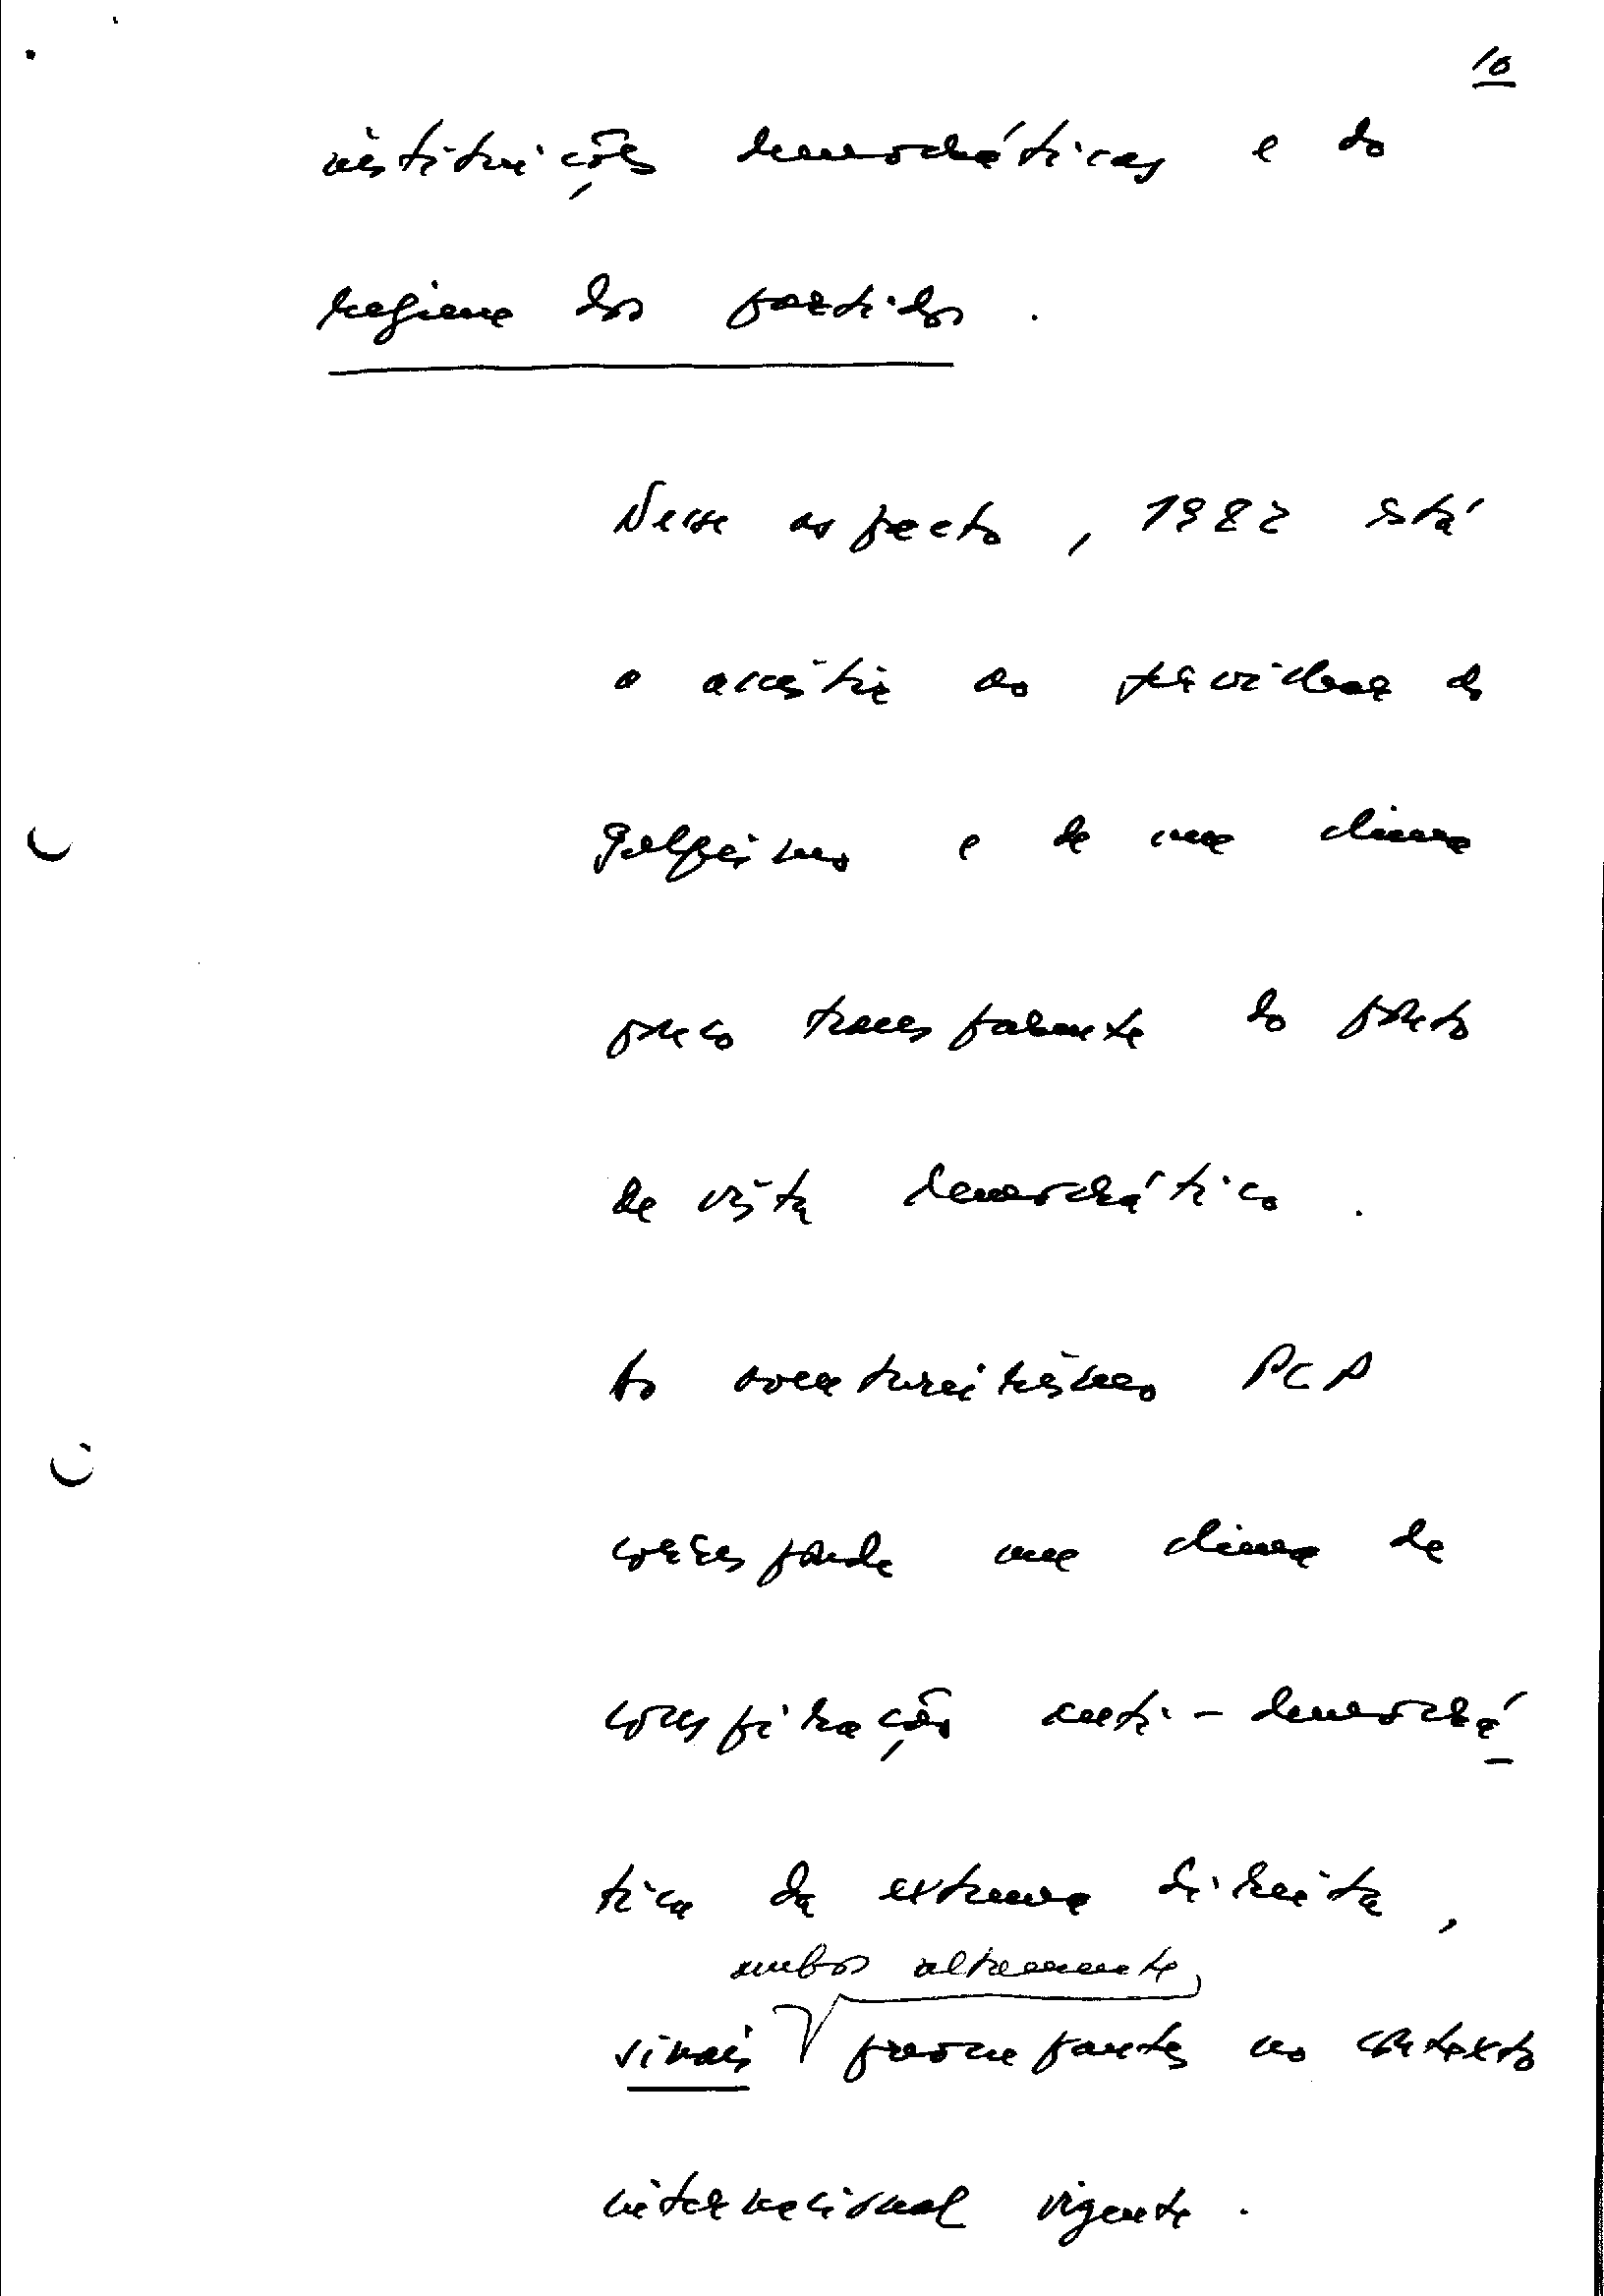 10
instituições democráticas e do
regime dos partidos.
Nesse aspecto, 1982 está
a assistir ao prividear do
golpismo e de um clima
pouco transparente do ponto
de vista democrático.
Ao aventureirismo PCP
corresponde um clima de
conspiração anti-democrá-
tica da extrema direita,
ambos altamente
sinais preocupantes no contexto
internacional vigente.